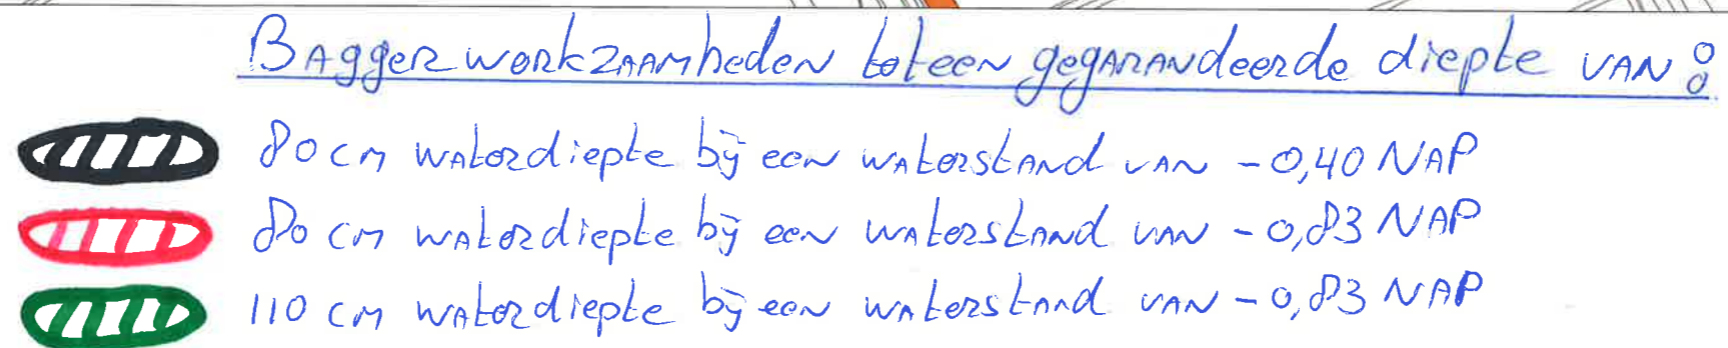 Baggerwerkzaamheden tot een gegarandeerde diepte van:
80 cm waterdiepte bij een waterstand van -0,40 NAP
80 cm waterdiepte bij een waterstand van -0,83 NAP
110 cm waterdiepte bij een waterstand van -0,83 NAP